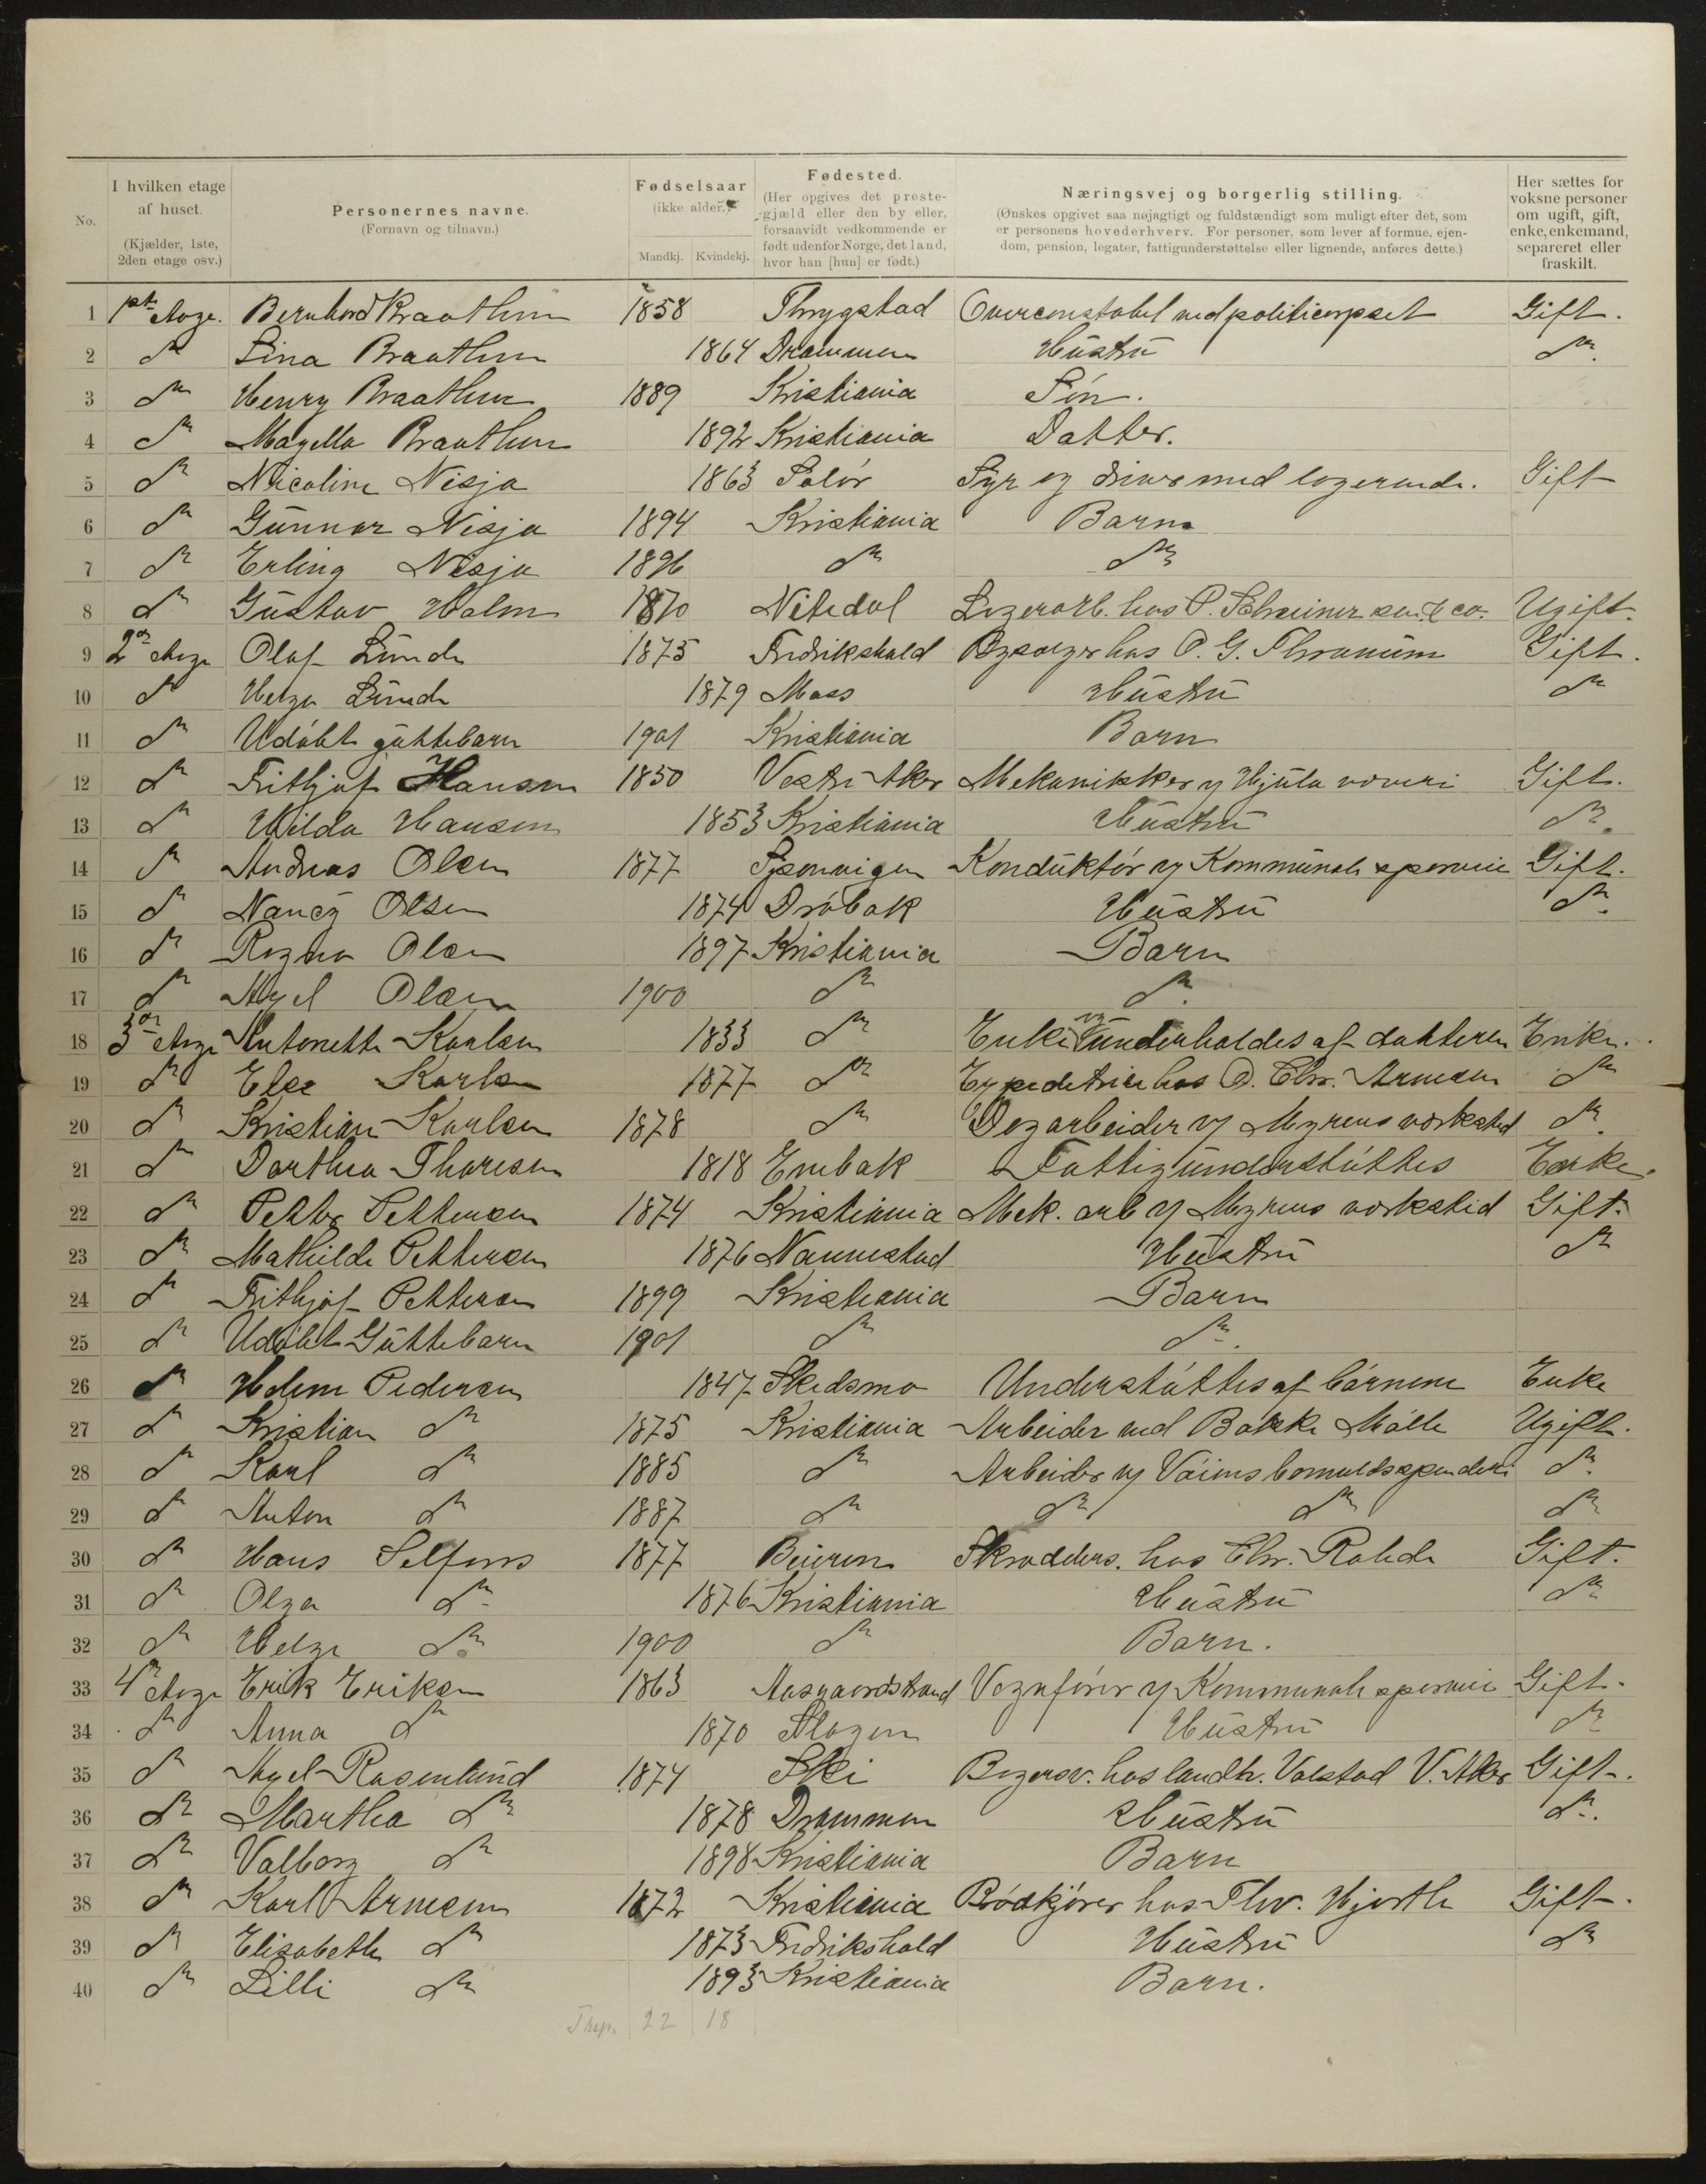 No.
I hvilken etage af huset. (Kjælder, 1ste, 2den etage osv.)
Personernes navne. (Fornavn og tilnavn.)
Fødselsaar (ikke alder.) Mandkj. Kvindekj.
Fødested. (Her opgives det prestegjæld eller den by eller, forsaavidt vedkommende er født udenfor Norge, det land, hvor han [hun] er født.)
Næringsvej og borgerlig stilling. (Ønskes opgivet saa nøjagtigt og fuldstændigt som muligt efter det, som er personens hovederhverv. For personer, som lever af formue, ejendom, pension, legater, fattigunderstøttelse eller lignende, anføres dette.)
Her sættes for voksne personer om ugift, gift, enke, enkemand, separeret eller fraskilt.
1 1ste etage. Bernhard Braathen 1858 Thrygstad Overconstabel ved politicorpset Gift.
2 do Lina Braathen 1864 Drammen Hustru do.
3 do Henry Braathen 1889 Kristiania Søn.
4 do Magella Braathen 1892 Kristiania Datter.
5 do Nicoline Nisja 1863 Solør Syr og driver med logerende. Gift
6 do Gunnar Nisja 1894 Kristiania Barn
7 do Erling Nisja 1896 do do
8 do Gustav Holm 1870 Nitedal Lagerarb. hos P. Schreiner sen. & co. Ugift.
9 2den etage Olaf Lunde 1875 Fredrikshald Bysælger hos O. G. Gift.
10 do Helga Lunde 1879 Moss Hustru do
11 do Udøbt guttebarn 1901 Kristiania Barn
12 do Frithjof Hansen 1850 Vestre Aker Mekanikker v Hjula væveri Gift.
13 do Hilda Hansen 1853 Kristiania Hustru do.
14 do Andreas Olsen 1877 Sponvigen Konduktør v Kommunale sporveie Gift.
15 do Nancy Olsen 1874 Drøbak Hustru do.
16 do Ragna Olsen 1897 Kristiania Barn
17 do Axel Olsen 1900 do do.
18 3die etage Antonette Karlsen 1833 do Enke og underholdes af datteren Enke.
19 do Else Karlsen 1877 do Expeditrice hos O. Chr. Arnesen do
20 do Kristian Karlsen 1878 do Dagarbeider v Myrens værksted do.
21 do Dorthea Thoresen 1818 Enebak Fattigunderstøttes Enke.
22 do Petter Pettersen 1874 Kristiania Mek. arb v Myrens værksted Gift.
23 do Mathilde Pettersen 1876 Nannestad Hustru do
24 do Frithjof Pettersen 1899 Kristiania Barn
25 do Udøbt Guttebarn 1901 do do.
26 do Helene Pedersen 1847 Skedsmo Understøttes af børnene Enke
27 do Kristian do 1875 Kristiania Arbeider ved Bakke Mølle Ugift.
28 do Karl do 1885 do Arbeider v Vøiens bomuldsspinderi do.
29 do Anton do 1887 do do do do
30 do Hans Selfors 1877 Beieren Skrædders. hos Chr. Rohde Gift.
31 do Olga do 1876 Kristiania Hustru do
32 do Helge do 1900 do Barn.
33 4de etage Erik Eriksen 1863 Aasgaardstrand Vognfører v Kommunale sporveie Gift.
34 do Anna do 1870 Slagen Hustru do
35 do Axel Rosenlund 1874 Ski Bogersv. hos landh. Valstad V. Aker Gift.
36 do Martha do 1878 Drammen Hustru do.
37 do Valborg do 1898 Kristiania Barn
38 do Karl Arnesen 1872 Kristiania Brødkjører hos Thv. Hjorth Gift.
39 do Elisabeth do 1873 Fredrikshald Hustru do
40 do Lilli do 1893 Kristiania Barn.
22 18